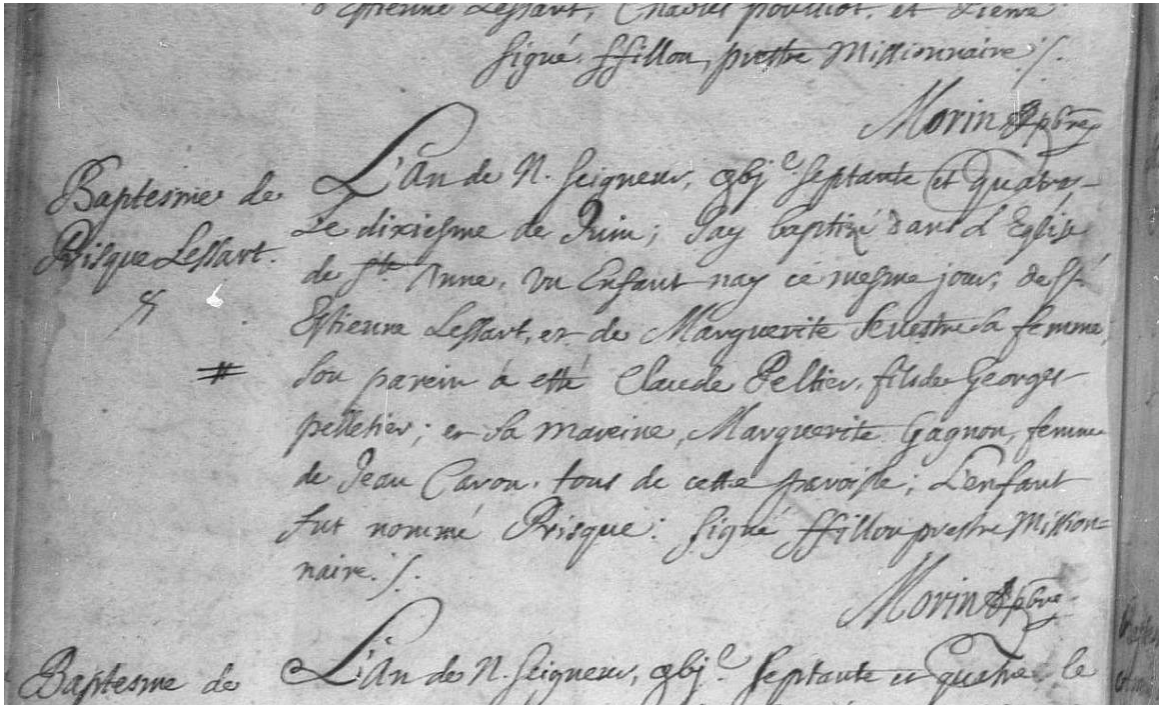 d'Estienne Lessart, Charles pouliot, et Pierre
signé ffillon, prestre Missionnaire ./.
Morin pbre
Baptesme de
Prisque Lessart.
L'An de N. Seigneur, gbj.e septante et quatre
Le dixiesme de Juin; J'ay baptizé dans L'Eglise
de Ste Anne, vn Enfant nay ce mesme jour, de st
Estienne Lessart, et de Marguerite Sevestre sa femme;
#
Son parein a esté Claude Peltier, fils de Georges
pelletier; et sa mareine, Marguerite Gagnon, femme
de Jean Caron, tous de cette paroisse; L'enfant
fut nommé Prisque: signé ffillon prestre Mission=
naire ./.
Morin pbre.
Baptesme de
L'An de N. Seigneur, gbj.e septante et quatre le